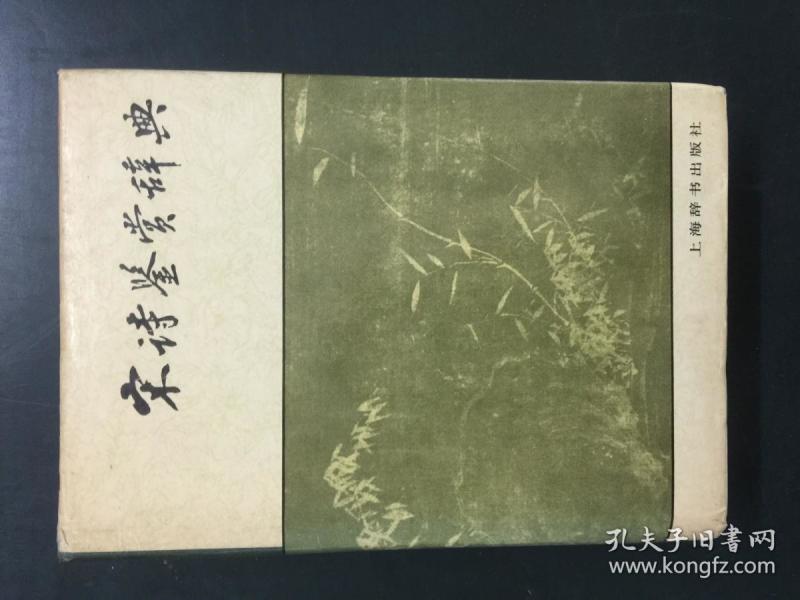 宋诗鉴赏辞典
上海辞书出版社
孔夫子旧書网
www.kongfz.com